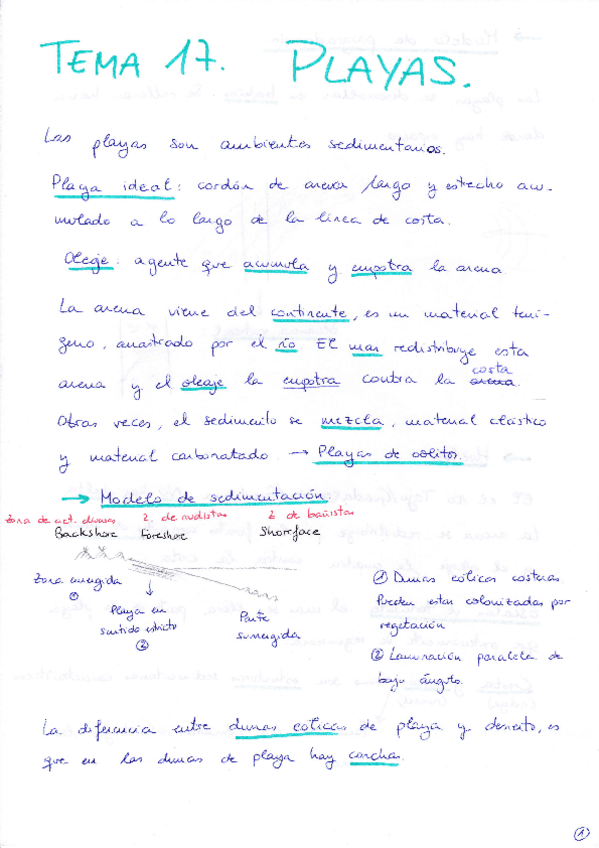 TEMA 17. PLAYAS.
Las playas son ambientes sedimentarios.
Playa ideal: cordón de arena largo y estrecho acu-
mulado a lo largo de la línea de costa.
Oleaje: agente que acumula y empotra la arena.
La arena viene del continente, es un material terri-
geno, arrastrado por el río. El mar redistribuye esta
arena y el oleaje la empotra contra la arena. costa
Otras veces, el sedimento se mezcla, material clástico
y material carbonatado → Playas de oolitos.
→ Modelo de sedimentación
Zona de act. diversas Z. de nudistas Z. de bañistas
Backshore Foreshore Shoreface
Zona emergida
①
Playa en
sentido estricto
②
Parte
sumergida
① Dunas eólicas costeras.
Pueden estar colonizadas por
vegetación.
② Laminación paralela de
bajo ángulo.
La diferencia entre dunas eólicas de playa y desierto, es
que en las dunas de playa hay conchas.
①